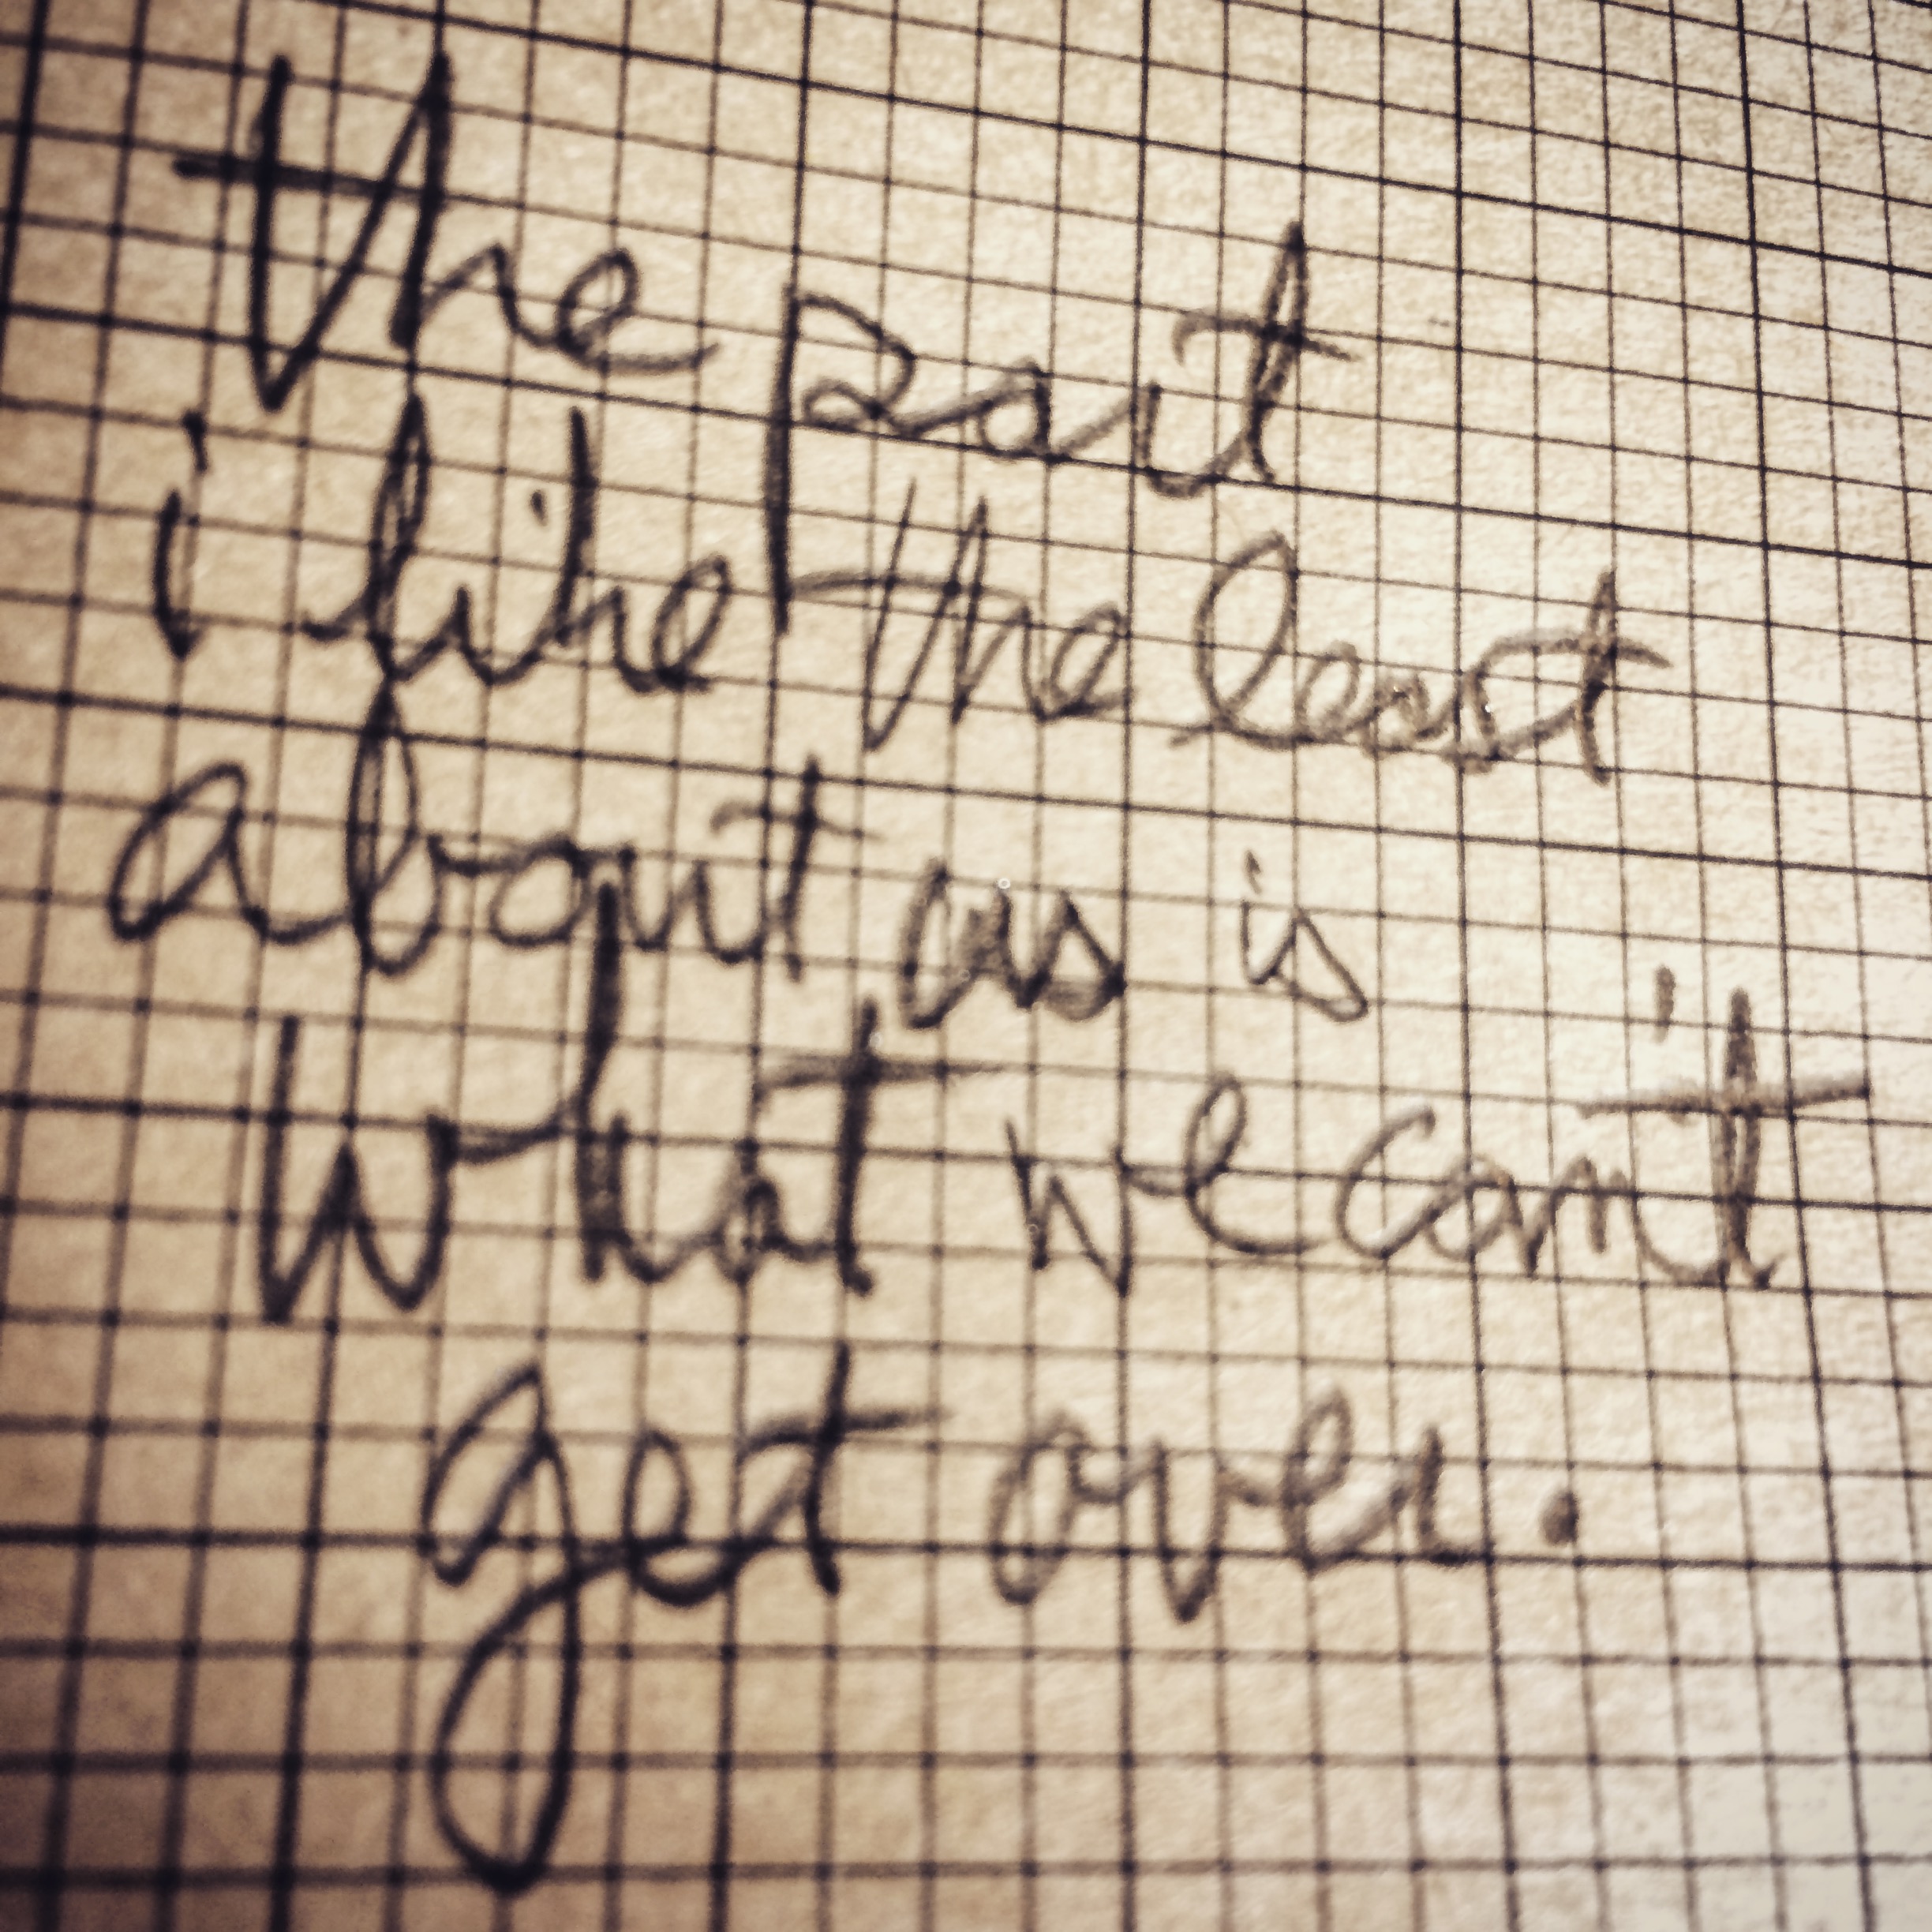 the part
i like the least
about us is
what we can't
get over.